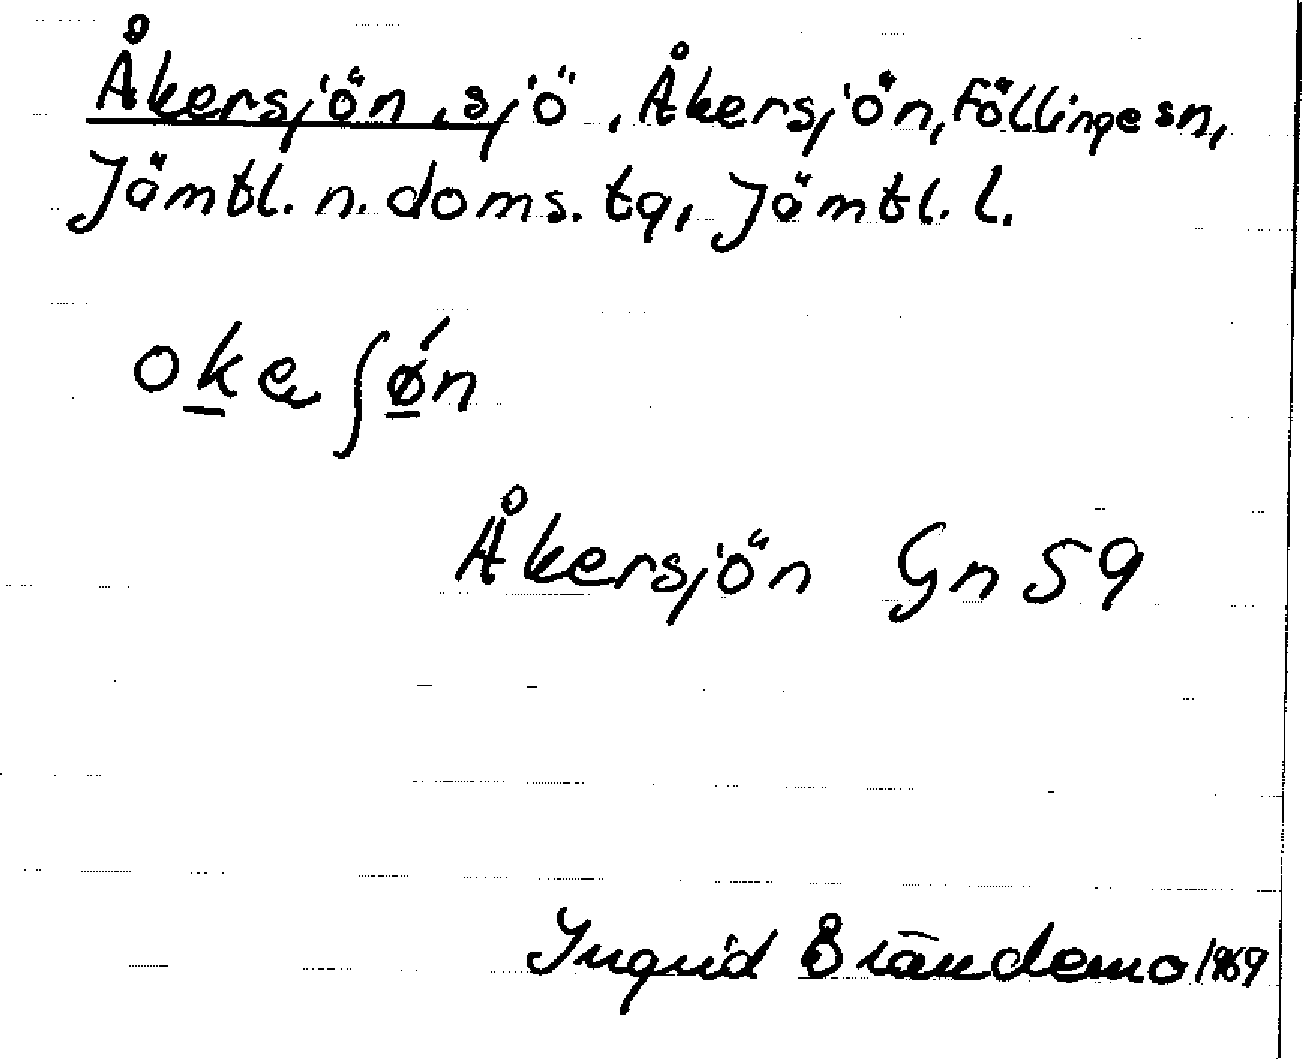 Åkersjön, sjö, Åkersjön, Föllinge sn,
Jämtl. n. doms. tg, Jämtl. l.
oke ʃǿn
Åkersjön Gn 59
Ingrid Brändemo 1969